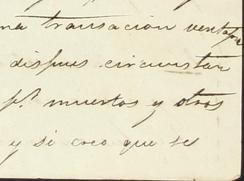 na transacion ventaja
dispues circunstan
p.ª muertos y otros
y si creo que se